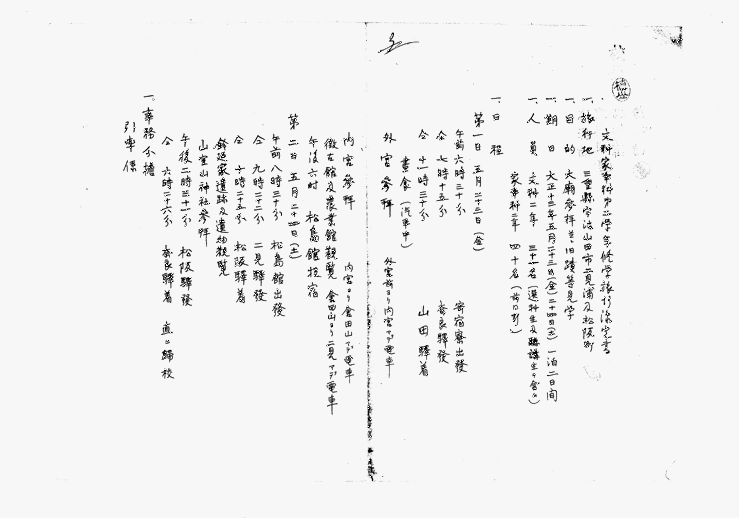 文科家事科第二学年修学旅行決定書
一、旅行地 三重縣宇治山田市二見浦及松阪町
一、目的 大廟参拝並ニ旧蹟等見学
一、期日 大正十三年五月二十三日(金)二十四日(土) 一泊二日間
一、人員 文科二年 三十一名(選科生及聴講生ヲ含ム)
家事科二年 四十名(前ニ同ジ)
一、日程
第一日 五月二十三日(金)
午前六時三十分 寄宿寮出發
仝 七時十五分 奈良驛發
仝 十一時三十分 山田驛着
晝食(汽車中)
外宮参拝 外宮前ヨリ内宮マデ電車
内宮参拝 内宮ヨリ倉田山マデ電車
徴古館及農業館観覧 倉田山ヨリ二見マデ電車
午後六時 松島館投宿
第二日 五月二十四日(土)
午前八時三十分 松島館出發
仝 九時二十二分 二見驛發
仝 十時二十五分 松阪驛着
鈴廼家遺跡及遺物観覧
山室山神社参拝
午後二時三十一分 松阪驛發
仝 六時二十六分 奈良驛着 直ニ歸校
一、事務分擔
引率係